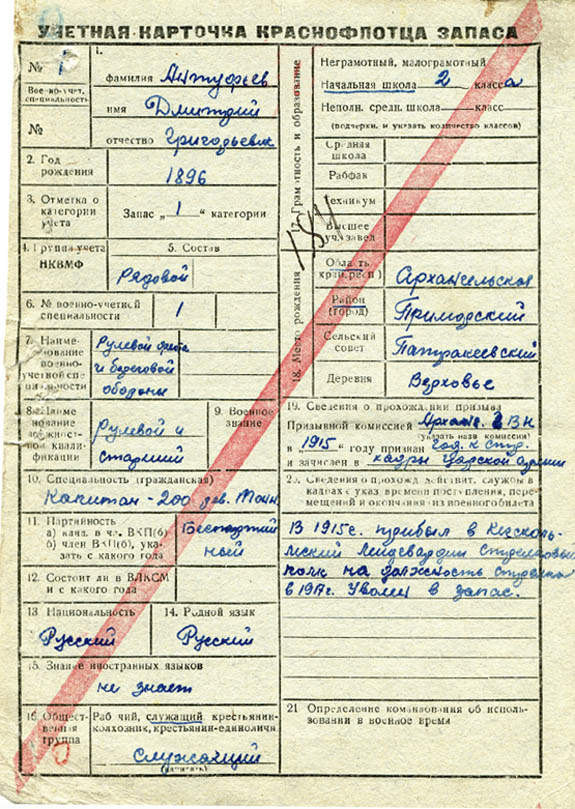 УЧЕТНАЯ КАРТОЧКА КРАСНОФЛОТЦА ЗАПАСА
№ 1
Военно-учет. специальность
№
1.
фамилия Антуфьев
имя Дмитрий
отчество Григорьевич
2. Год рождения
1896
3. Отметка о категории учета
Запас „ 1 “ категории
4. Группа учета НКВМФ
5. Состав
Рядовой
6. № военно-учетной специальности
1
7. Наименование военно-учетной специальности
Рулевой флота
и береговой
обороны
8. Наименование должностной квалификации
Рулевой и
старший
9. Военное звание
10. Специальность (гражданская)
Капитан - 200
11. Партийность
а) канд. в чл. ВКП(б)
б) член ВКП(б), указать с какого года
Беспартийный
12. Состоит ли в ВЛКСМ и с какого года
13. Национальность
Русский
14. Родной язык
Русский
15. Знание иностранных языков
не знает
16. Общественная группа
Рабочий, служащий, крестьянин-колхозник, крестьянин-единоличн.
служащий
17. Грамотность и образование
Неграмотный, малограмотный
Начальная школа 2 класса
Неполн. средн. школа класс
(подчеркн. и указать количество классов)
Средняя школа
Рабфак
Техникум
Высшее уч. завед.
18. Место рождения
Область (край, респ)
Архангельская
Район (город)
Приморский
Сельский совет
Деревня
Верховье
19. Сведения о прохождении призыва
Призывной комиссией
(указать назв. комиссии)
в „ 1915 “ году признан
и зачислен в кадры царской армии
20. Сведения о прохожд. действит. службы в кадрах с указ. времени поступления, перемещений и окончания из военного билета
В 1915 г. прибыл в Кексгольмский
Лейбгвардии Стрелковый
полк на должность стрелка
в 1917 г. Уволен в запас.
21 Определение командования об использовании в военное время